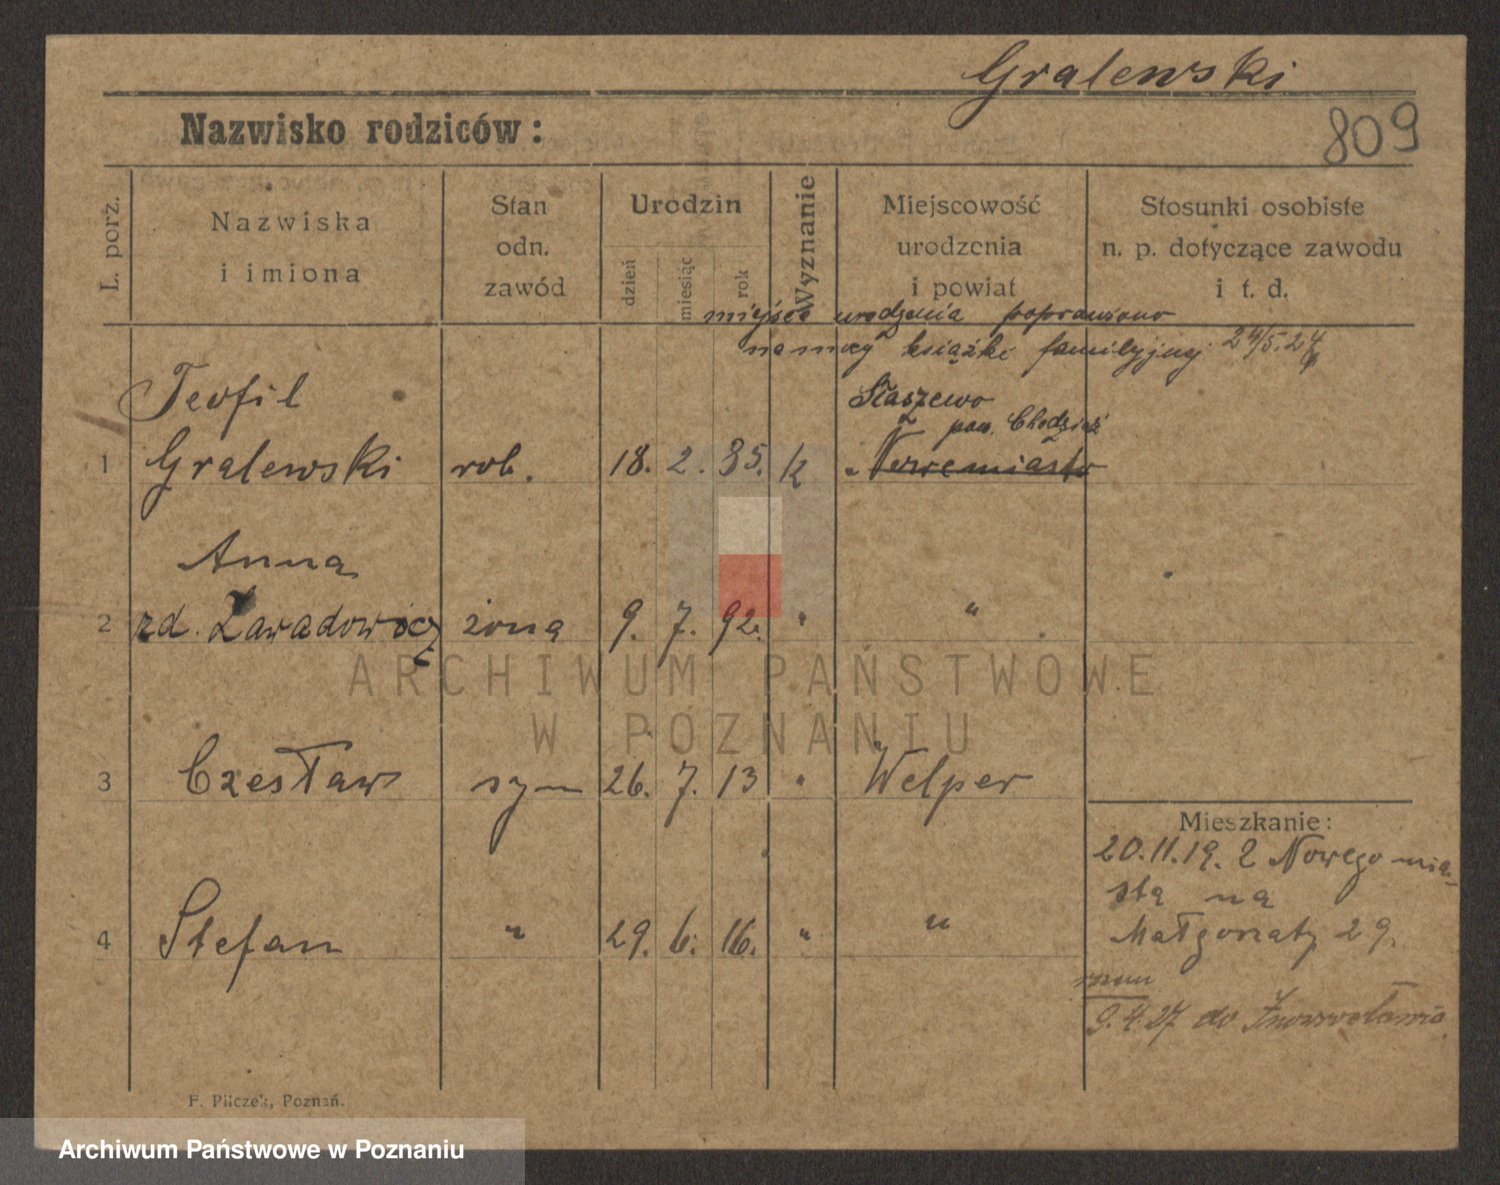 Gralewski
Nazwisko rodziców:
809
L. porz.
Nazwiska
i imiona
Stan
odn.
zawód
Urodzin
dzień
miesiąc
rok
Wyznanie
Miejscowość
urodzenia
i powiat
Stosunki osobiste
n. p. dotyczące zawodu
i t. d.
miejsce urodzenia poprawiono
na mocy książki familijnej 24/5.24
Teofil
Staszewo
pow. Chodzież
1 Gralewski rob. 18. 2. 85. k Nowemiasto
Anna
2 zd. Zawadowicz żona 9. 7. 92. " "
ARCHIWUM PAŃSTWOWE
W POZNANIU
3 Czesław syn 26. 7. 13 " Welper
Mieszkanie:
20.11.19. z Nowego mia-
sta na
4 Stefan " 29. 6. 16. " "
Małgorzaty 29.
9.4.27 do Inowrocławia
F. Pilczek, Poznań.
Archiwum Państwowe w Poznaniu